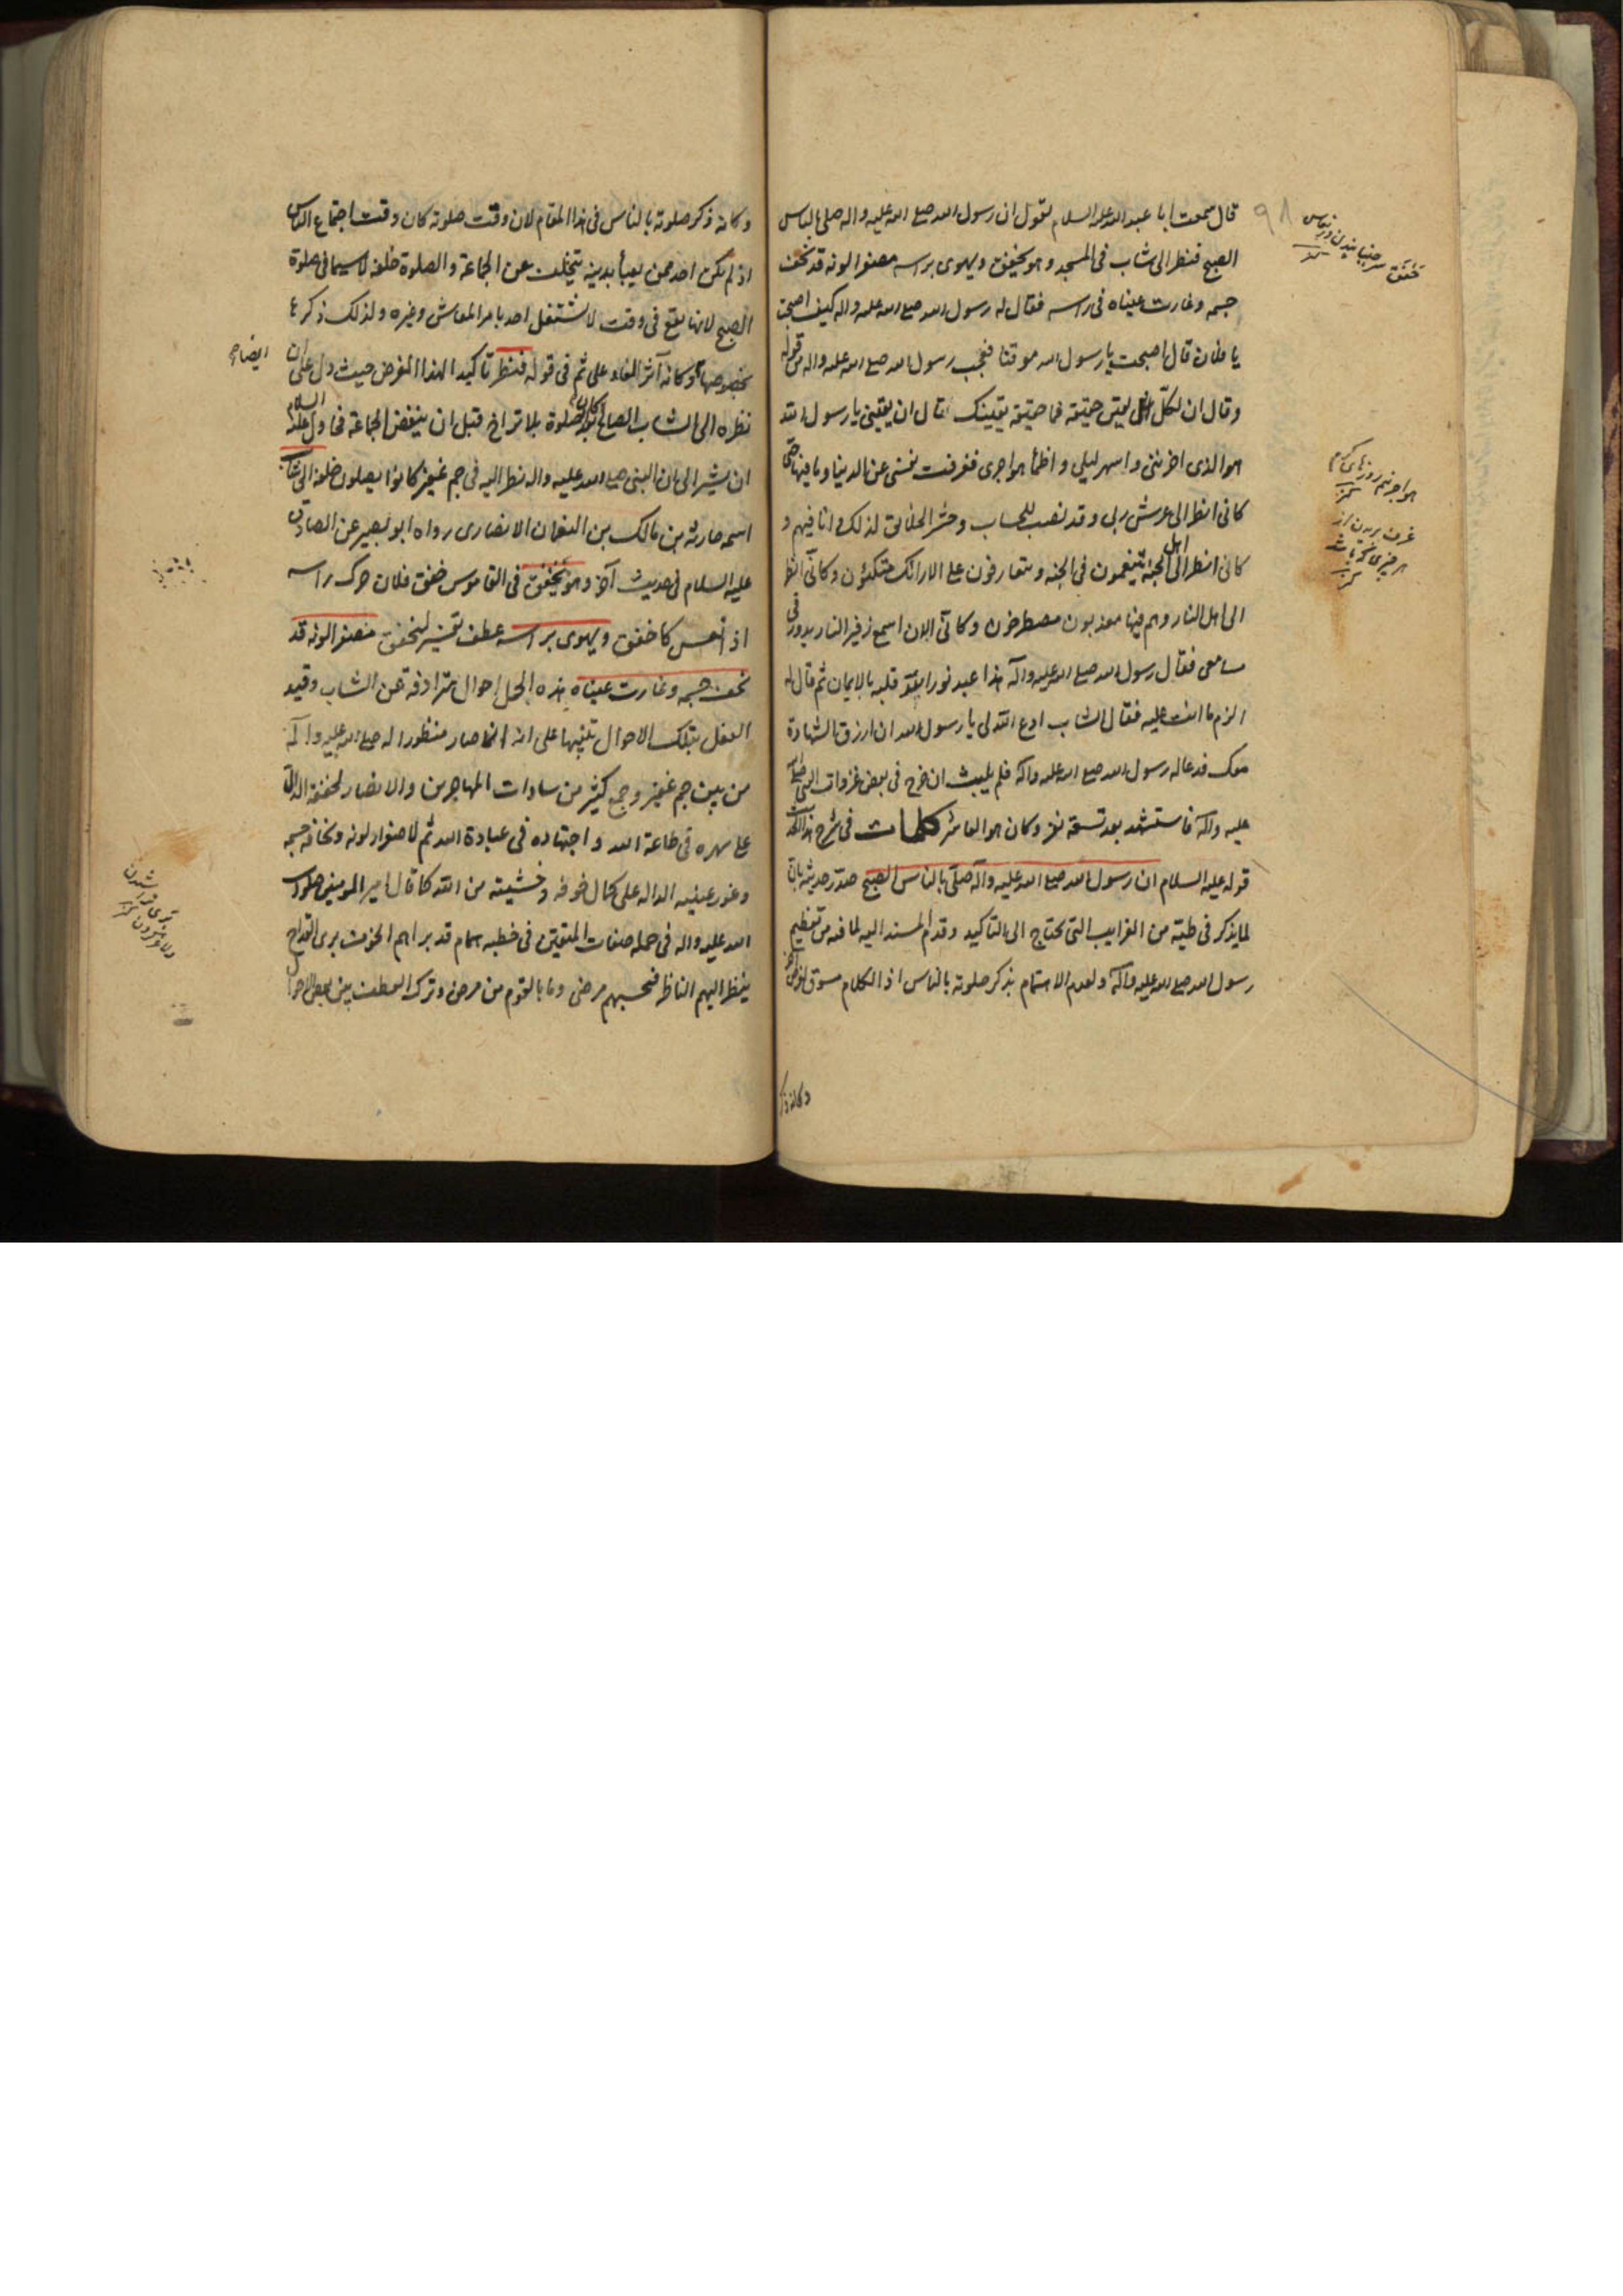 قال سمعت ابا عبد الله علیه السلام یقول ان رسول الله صلی الله علیه واله صلی بالناس
الصبح فنظر الی شاب فی المسجد وهو یخفق ویهوی براسه مصفرا لونه قد نحف
جسمه وغارت عیناه فی راسه فقال له رسول الله صلی الله علیه واله کیف اصبحت
یا فلان قال اصبحت یا رسول الله موقنا فعجب رسول الله صلی الله علیه واله من قوله
وقال ان لکل یقین حقیقة فما حقیقة یقینک فقال ان یقینی یا رسول الله
هو الذی احزننی واسهر لیلی واظمأ هواجری فعزفت نفسی عن الدنیا وما فیها حتی
کانی انظر الی عرش ربی وقد نصب للحساب وحشر الخلائق لذلک وانا فیهم و
کانی انظر الی اهل الجنة یتنعمون فی الجنة ویتعارفون علی الارائک متکئون وکانی انظر
الی اهل النار وهم فیها معذبون مصطرخون وکانی الان اسمع زفیر النار یدور فی
مسامعی فقال رسول الله صلی الله علیه وآله هذا عبد نور الله قلبه بالایمان ثم قال له
الزم ما انت علیه فقال الشاب ادع الله لی یا رسول الله ان ارزق الشهادة
معک فدعا له رسول الله صلی الله علیه وآله فلم یلبث ان خرج فی بعض غزوات النبی صلی الله
علیه وآله فاستشهد بعد تسعة نفر وکان هو العاشر کلمات فی شرح هذا
قوله علیه السلام ان رسول الله صلی الله علیه وآله صلی بالناس الصبح صدّر حدیثه بان
لما یذکر فی طیّه من الغرایب التی تحتاج الی التاکید وقدم المسند الیه لما فیه من تعظیم
رسول الله صلی الله علیه وآله ولعدم الاهتمام بذکر صلوته بالناس اذ الکلام مسوق لغرض
وکانه ذکر
خفق سر جنبانیدن در نعاس
کنز
هواجر نیم روزهای گرم
کنز
۹۸
وکانه ذکر صلوته بالناس فی هذا المقام لان وقت صلوته کان وقت اجتماع الناس
اذ لم یکن احد ممن یعبأ بدینه یتخلف عن الجماعة والصلوة خلفه لا سیما فی صلوة
الصبح لانها یقع فی وقت لا یشتغل احد بامر المعاش وغیره ولذلک ذکر ع
بخصوصها وکانه آثر الفاء علی ثم فی قوله فنظر تاکیدا لهذا الغرض حیث دل علی ان
نظره الی الشاب الصالح کان بعد الصلوة بلا تراخ قبل ان ینفض الجماعة فحاول علیه السلام
ان یشیر الی ان النبی صلی الله علیه واله نظر الیه فی جم غفیر کانوا یصلون خلفه الی شاب
اسمه حارثة بن مالک بن النعمان الانصاری رواه ابو بصیر عن الصادق
علیه السلام فی حدیث آخر وهو یخفق فی القاموس خفق فلان حرک راسه
اذا نعس کاخفق ویهوی براسه عطف تفسیر لیخفق مصفرا لونه قد
نحف جسمه وغارت عیناه هذه الجمل احوال مترادفة عن الشاب وقید
الفعل بتلک الاحوال تنبیها علی انه انما صار منظورا له صلی الله علیه وآله
من بین جم غفیر وجمع کثیر من سادات المهاجرین والانصار لخفقه الدال
علی سهره فی طاعة الله واجتهاده فی عبادة الله ثم لاصفرار لونه ونحافة جسمه
وغور عینیه الدالة علی کمال خوفه وخشیته من الله کما قال امیر المومنین صلوات
الله علیه واله فی جملة صفات المتقین فی خطبه همام قد براهم الخوف بری القداح
ینظر الیهم الناظر فیحسبهم مرضی وما بالقوم من مرض وترک العطف بین بعض الاحوال
ایضا